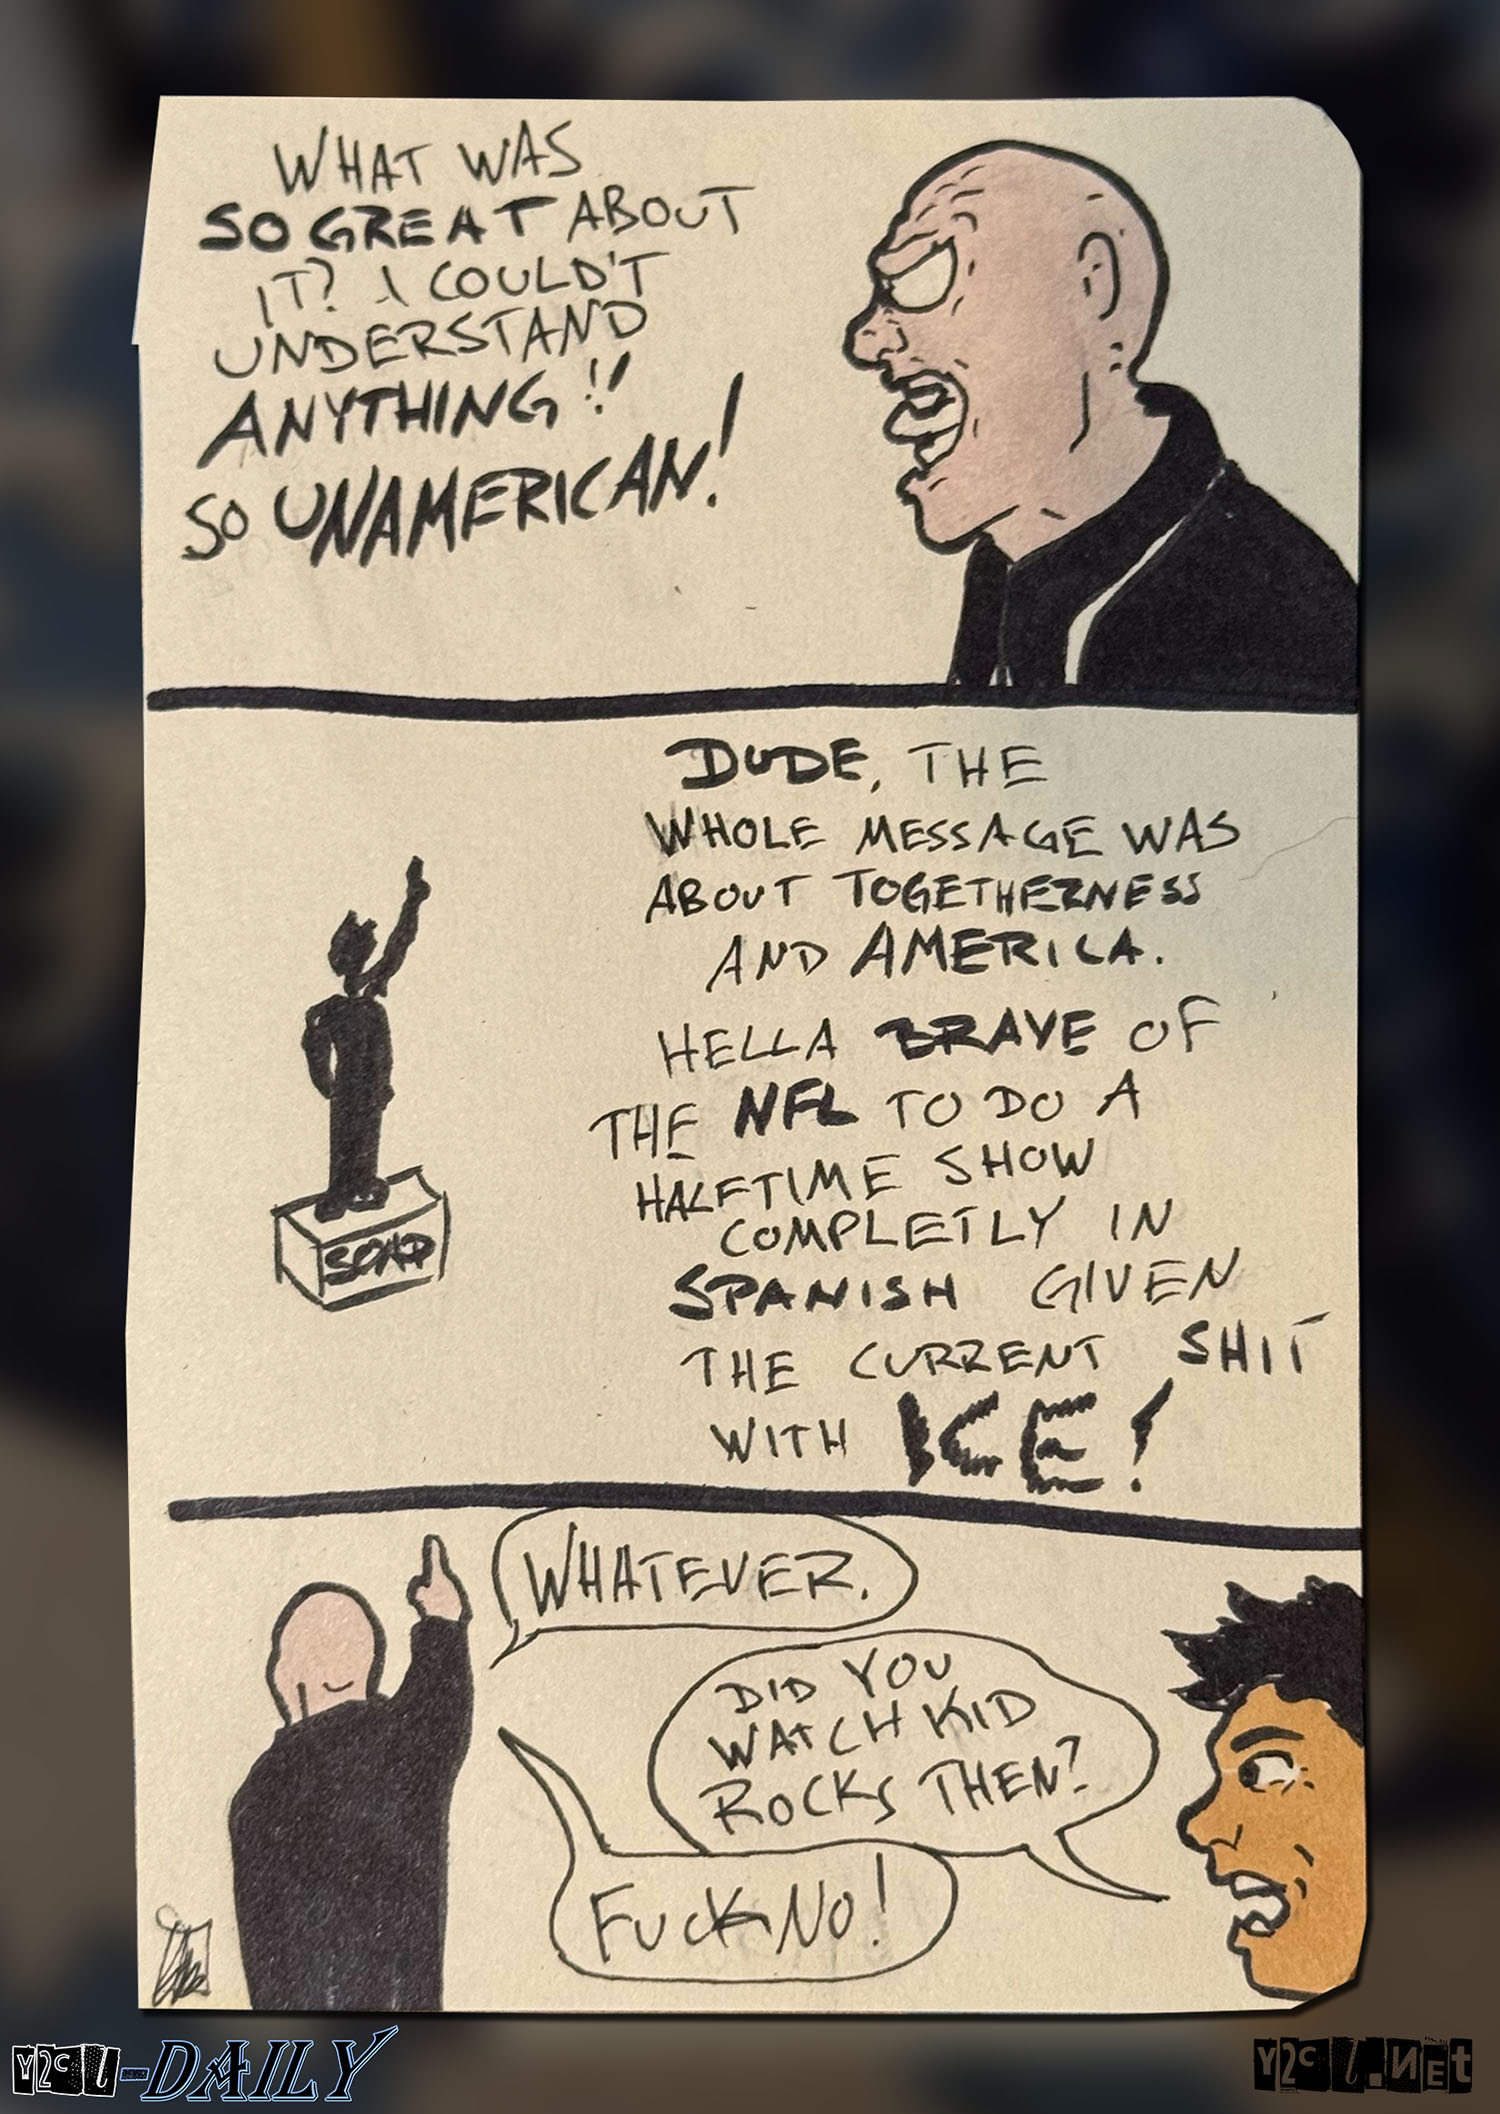 WHAT WAS
SO GREAT ABOUT
IT? I COULD'T
UNDERSTAND
ANYTHING!!
SO UNAMERICAN!
DUDE, THE
WHOLE MESSAGE WAS
ABOUT TOGETHERNESS
AND AMERICA.
HELLA BRAVE OF
THE NFL TO DO A
HALFTIME SHOW
COMPLETLY IN
SPANISH GIVEN
THE CURRENT SHIT
WITH ICE!
SOAP
WHATEVER.
DID YOU
WATCH KID
ROCKS THEN?
FUCK NO!
Y2CL-DAILY
Y2CL.NEt